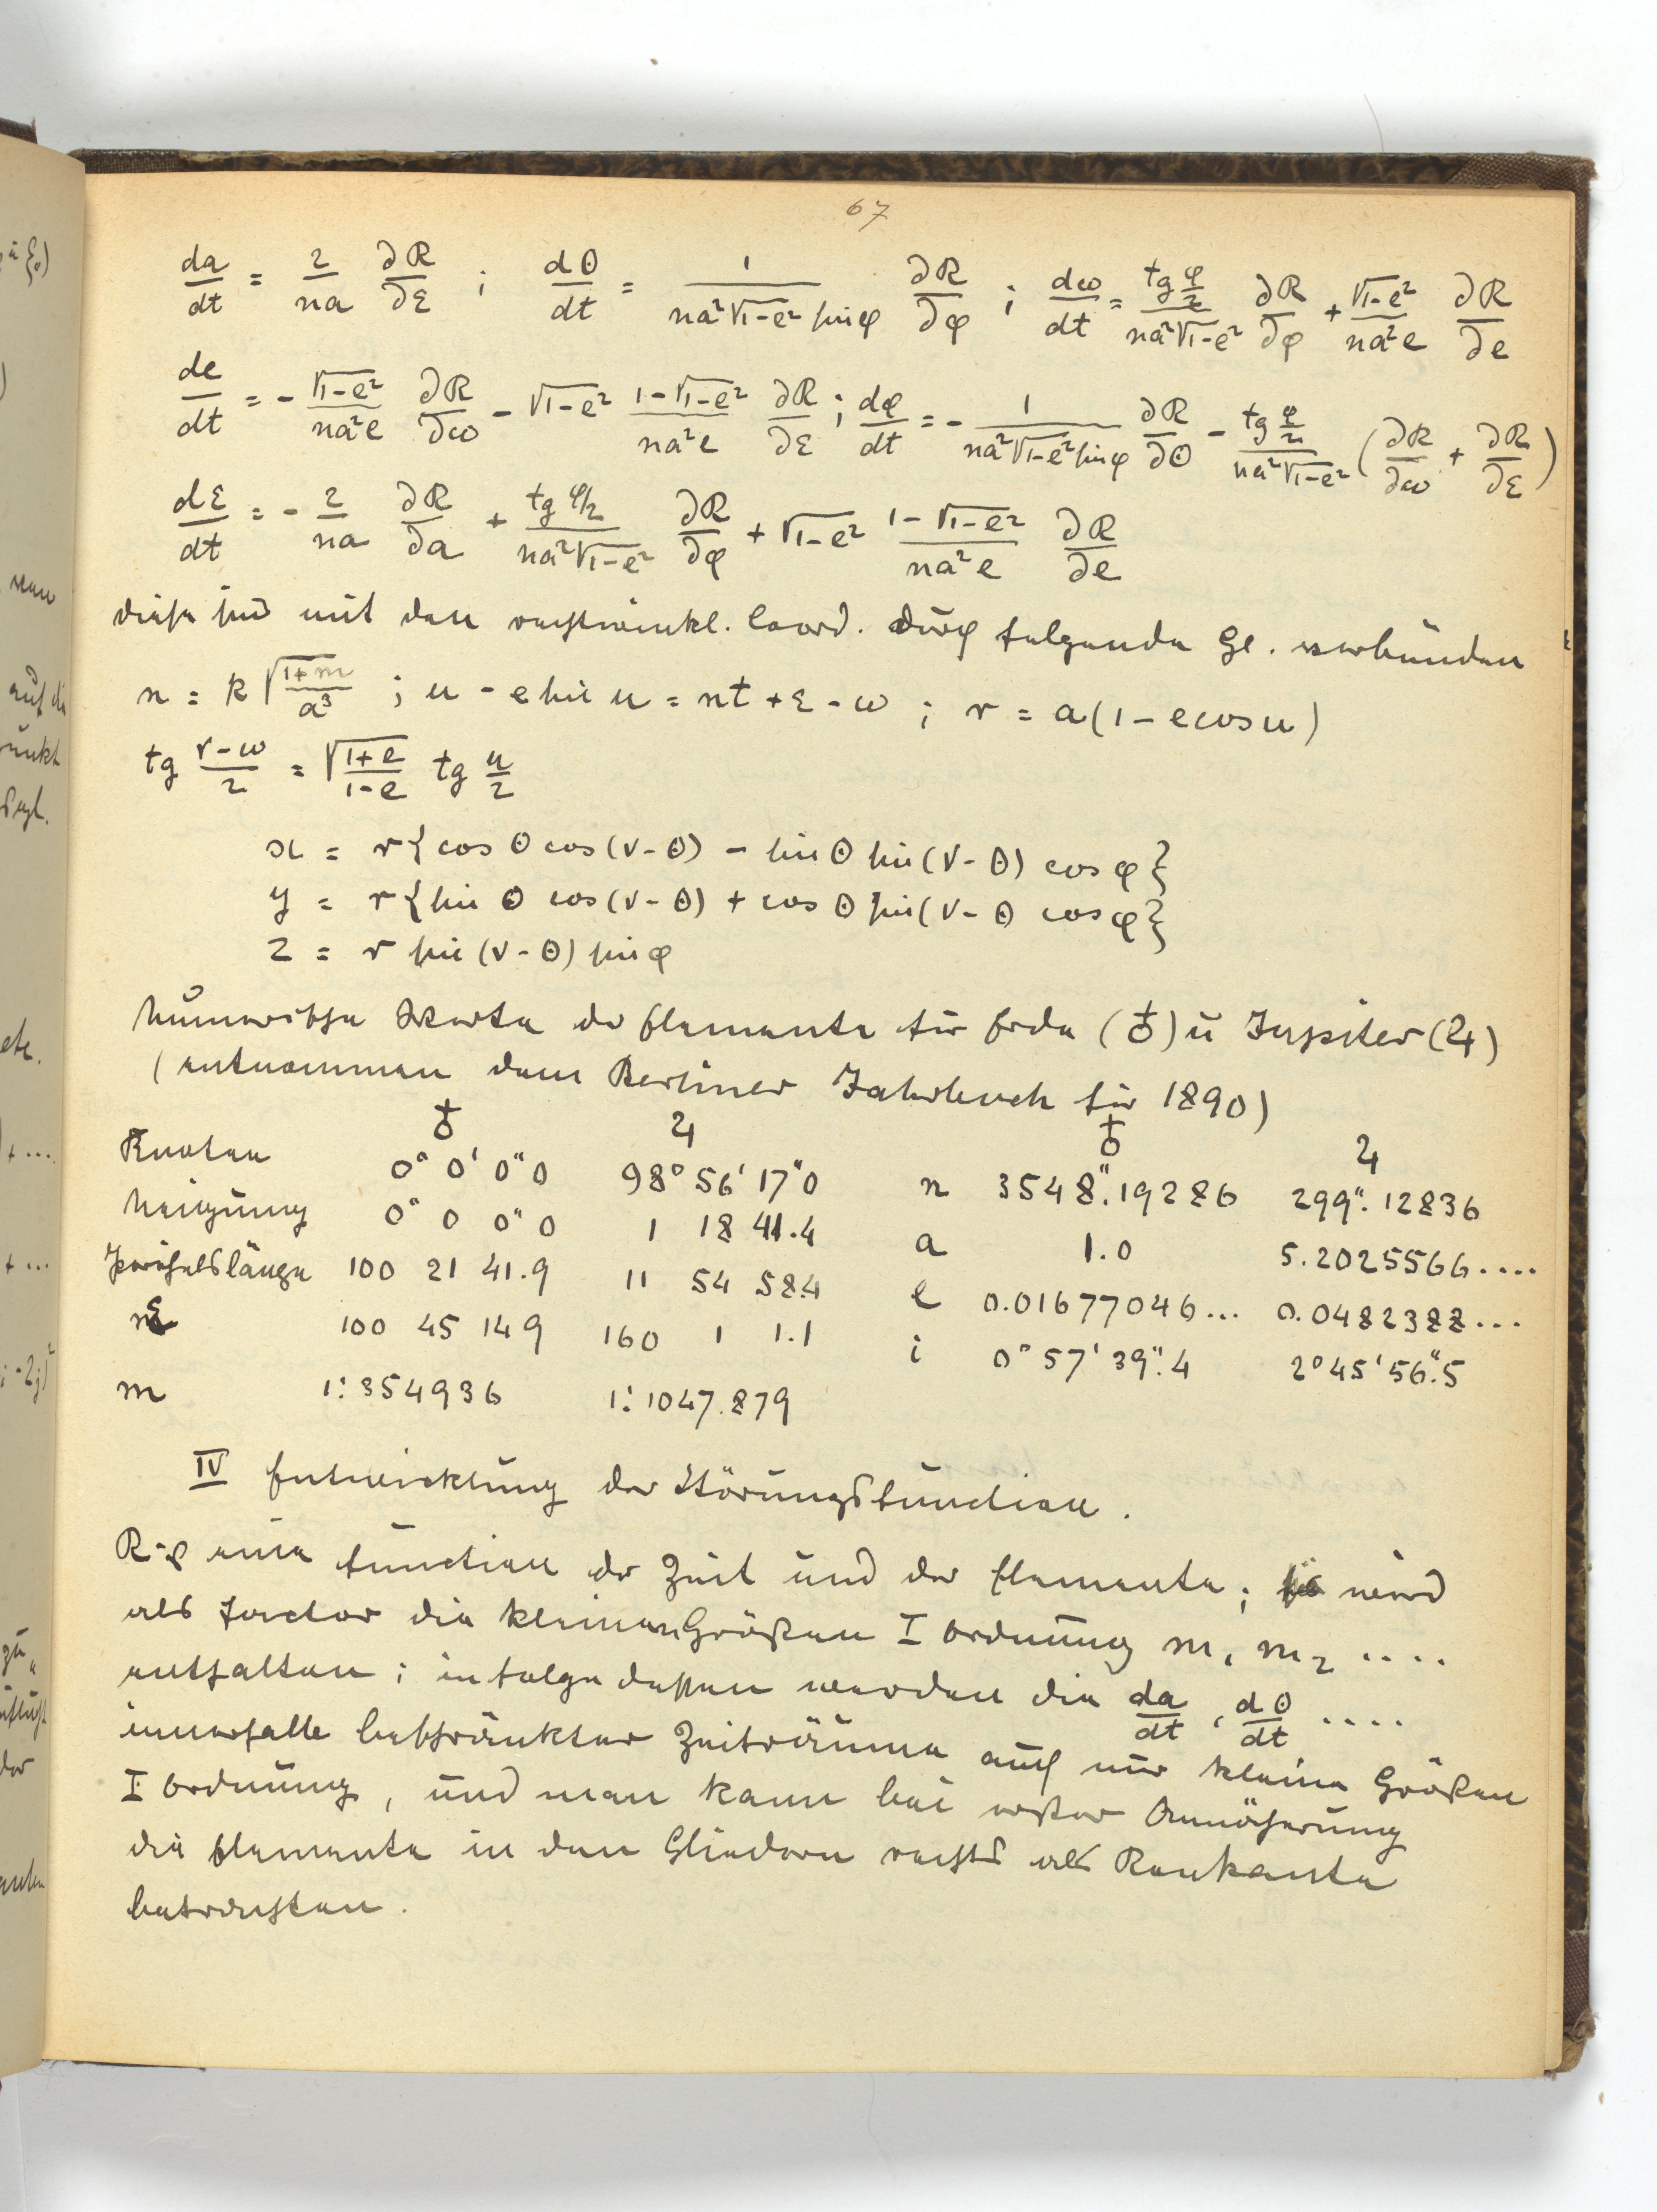 67
da/dt = 2/na ∂R/∂ε ; dθ/dt = 1/(na²√1-e² sin φ) ∂R/∂φ ; dω/dt = tg φ/2 /(na²√1-e²) ∂R/∂φ + √1-e²/(na²e) ∂R/∂e
de/dt = - √1-e²/(na²e) ∂R/∂ω - √1-e² (1-√1-e²)/(na²e) ∂R/∂ε ; dφ/dt = - 1/(na²√1-e² sin φ) ∂R/∂θ - tg φ/2 /(na²√1-e²) (∂R/∂ω + ∂R/∂ε)
dε/dt = - 2/na ∂R/∂a + tg φ/2 /(na²√1-e²) ∂R/∂φ + √1-e² (1-√1-e²)/(na²e) ∂R/∂e
diese sind mit den rechtwinkl. Coord. durch folgende Gl. verbunden
n = k √(1+m)/a³ ; u - e sin u = nt + ε - ω ; r = a(1 - e cos u)
tg (v-ω)/2 = √(1+e)/(1-e) tg u/2
x = r{cos θ cos(v-θ) - sin θ sin(v-θ) cos φ}
y = r{sin θ cos(v-θ) + cos θ sin(v-θ cos φ}
z = r sin(v-θ) sin φ
Numerische Werte der Elemente für Erde (♁) u Jupiter (♃)
(entnommen dem Berliner Jahrbuch für 1890)
♁ ♃ ♁ ♃
Knoten 0° 0' 0"0 98° 56' 17"0 n 3548".19286 299".12836
Neigung 0° 0 0"0 1 18 41.4 a 1.0 5.2025566....
Perihelslänge 100 21 41.9 11 54 58.4 e 0.01677046... 0.0482388...
ε 100 45 14 9 160 1 1.1 i 0° 57' 39".4 2° 45' 56".5
m 1:354936 1:1047.879
IV Entwicklung der Störungsfunction.
R ist eine Function der Zeit und der Elemente; sie wird
als Factor die kleinen Größen I Ordnung m₁ m₂ ....
enthalten; in folge dessen werden die da/dt, dθ/dt ....
innerhalb beschränkter Zeiträume auch nur kleine Größen
I Ordnung, und man kann bei erster Annäherung
die Elemente in den Gliedern rechts als Konstante
betrachten.